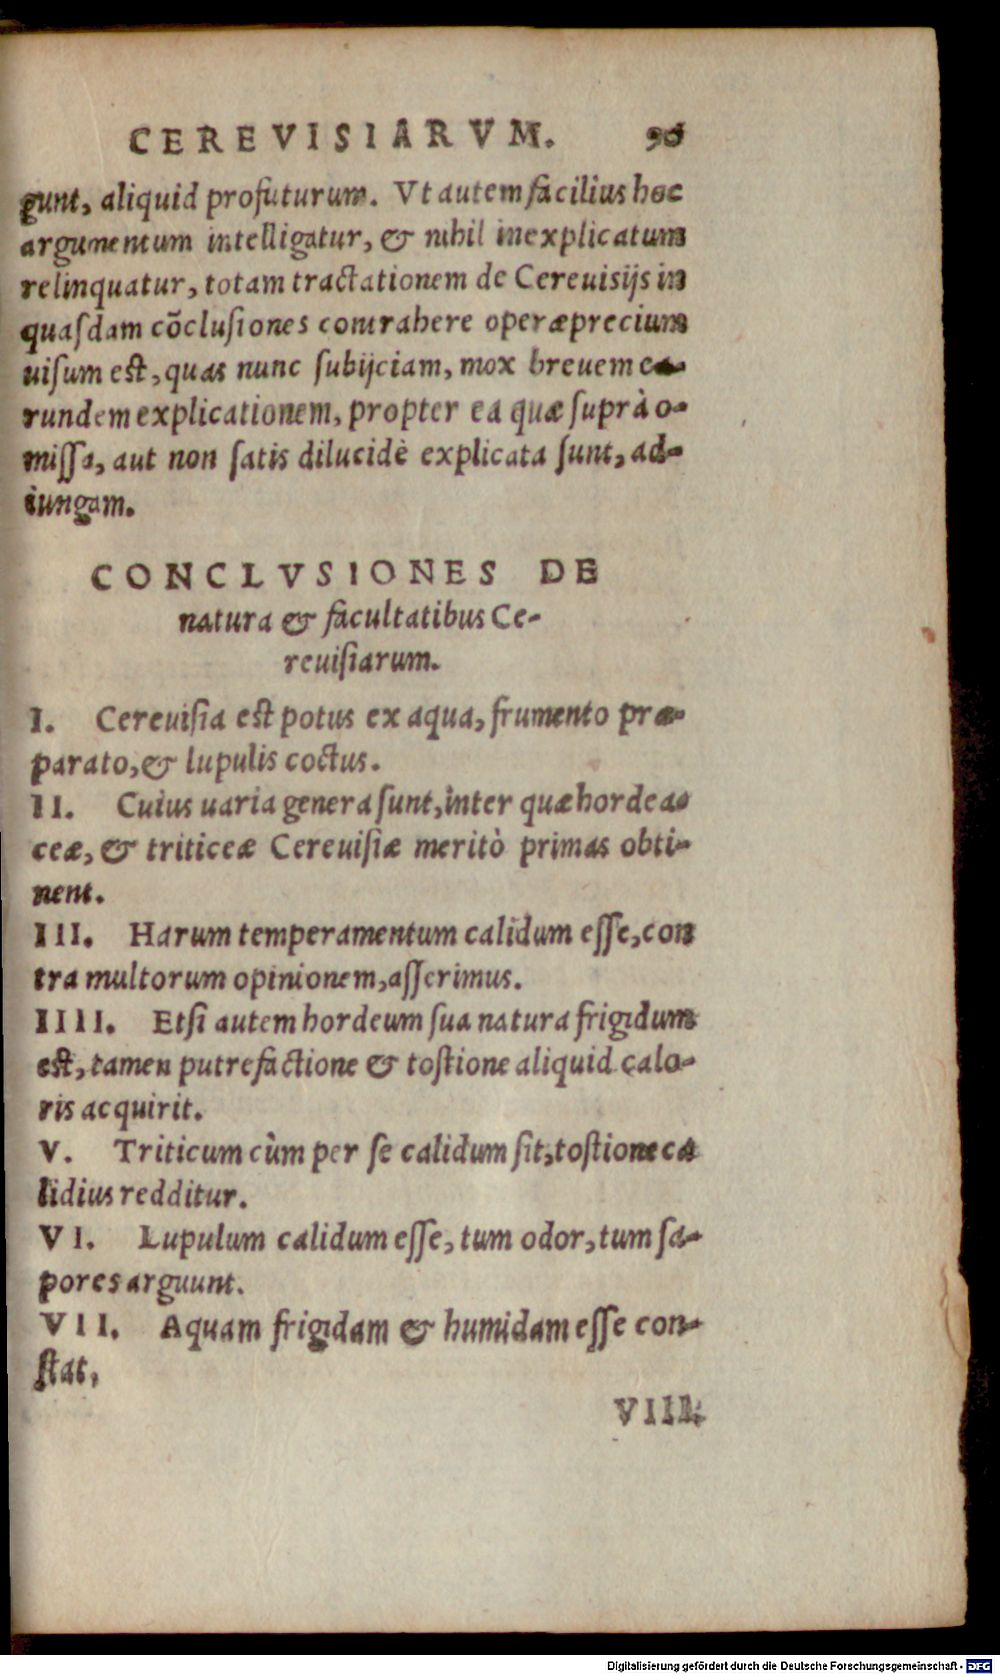 CEREVISIARVM. 96
gunt, aliquid profuturum. Vt autem facilius hoc
argumentum intelligatur, & nihil inexplicatum
relinquatur, totam tractationem de Cereuisijs in
quasdam cõclusiones contrahere operæprecium
uisum est, quas nunc subijciam, mox breuem ea-
rundem explicationem, propter ea quæ suprà o-
missa, aut non satis dilucidè explicata sunt, ad-
iungam.
CONCLVSIONES DE
natura & facultatibus Ce-
reuisiarum.
I. Cereuisia est potus ex aqua, frumento præ-
parato, & lupulis coctus.
II. Cuius uaria genera sunt, inter quæ hordea-
ceæ, & triticeæ Cereuisiæ meritò primas obti-
nent.
III. Harum temperamentum calidum esse, con
tra multorum opinionem, asserimus.
IIII. Etsi autem hordeum sua natura frigidum
est, tamen putrefactione & tostione aliquid calo-
ris acquirit.
V. Triticum cùm per se calidum sit, tostione ca
lidius redditur.
VI. Lupulum calidum esse, tum odor, tum sa-
pores arguunt.
VII. Aquam frigidam & humidam esse con-
stat,
VIII.
Digitalisierung gefördert durch die Deutsche Forschungsgemeinschaft - DFG